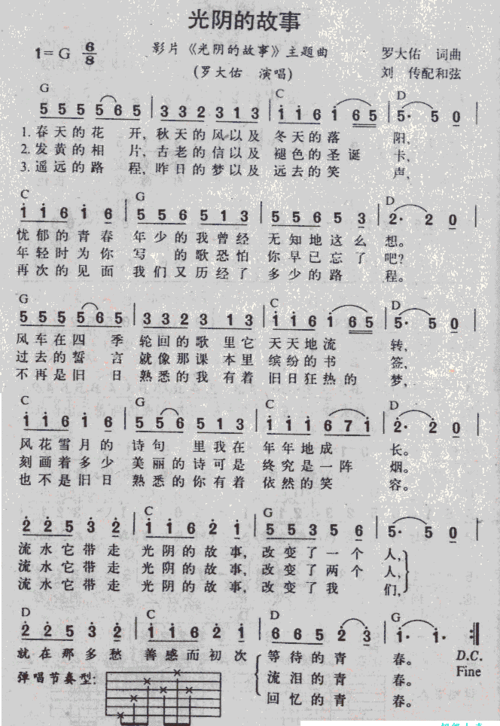 光阴的故事
1=G 6/8 影片《光阴的故事》主题曲 罗大佑 词曲
(罗大佑 演唱) 刘 传配和弦
G C D
5 5 5 5 6 5 | 3 3 2 3 1 3 | i i 6 i 6 5 | 5· 5 0 |
1.春天的花 开,秋天的风以及 冬天的落 阳,
2.发黄的相 片,古老的信以及 褪色的圣诞 卡,
3.遥远的路 程,昨日的梦以及 远去的笑 声,
C G D
i i 6 i 6 | 5 5 6 5 1 3 | 5 5 6 5 3 | 2· 2 0 |
忧郁的青春 年少的我曾经 无知地这么 想。
年轻时为你 写 的歌恐怕 你早已忘了 吧?
再次的见面 我们又历经了 多少的路 程。
G C D
5 5 5 5 6 5 | 3 3 2 3 1 3 | i i 6 i 6 5 | 5· 5 0 |
风车在四 季 轮回的歌里它 天天地流 转,
过去的誓 言 就像那课本里 缤纷的书 签,
不再是旧 日 熟悉的我有着 旧日狂热的 梦,
C G C D
i i 6 i i | 5 5 6 5 1 3 | i i i 6 7 1 | 2· 2 0 |
风花雪月的 诗句 里我在 年年地成 长。
刻画着多少 美丽的诗可是 终究是一阵 烟。
也不是旧日 熟悉的你有着 依然的笑 容。
D C G D
2 2 5 3 2 | i i 6 2 i | 5 5 3 5 6 | 5· 5 0 |
流水它带走 光阴的故事,改变了一个 人,
流水它带走 光阴的故事,改变了两个 人,
流水它带走 光阴的故事,改变了我 们,
D C D G
2 2 5 3 2 | i i 6 2 i | 6 6 5 2 3 | i· i· :||
就在那多愁 善感而初次 等待的青 春。 D.C.
弹唱节奏型: 流泪的青 春。 Fine
回忆的青 春。